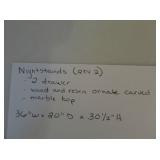 Nightstands (QTY 2)
- 2 drawer
- wood and resin ornate carved
- marble top
36"W x 20"D x 30 1/2"H